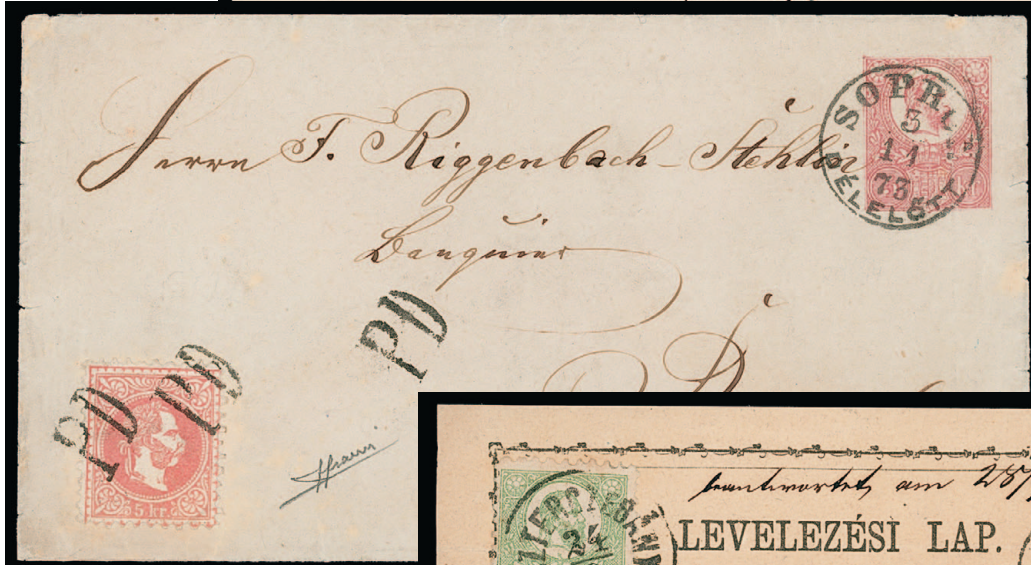 Herrn F. Riggenbach-Stehlin
Banquier
SOPR
3
11
73
DÉLELŐTT
PD
PD
PD
5 kr.
beantwortet am 287
24
LEVELEZÉSI LAP.